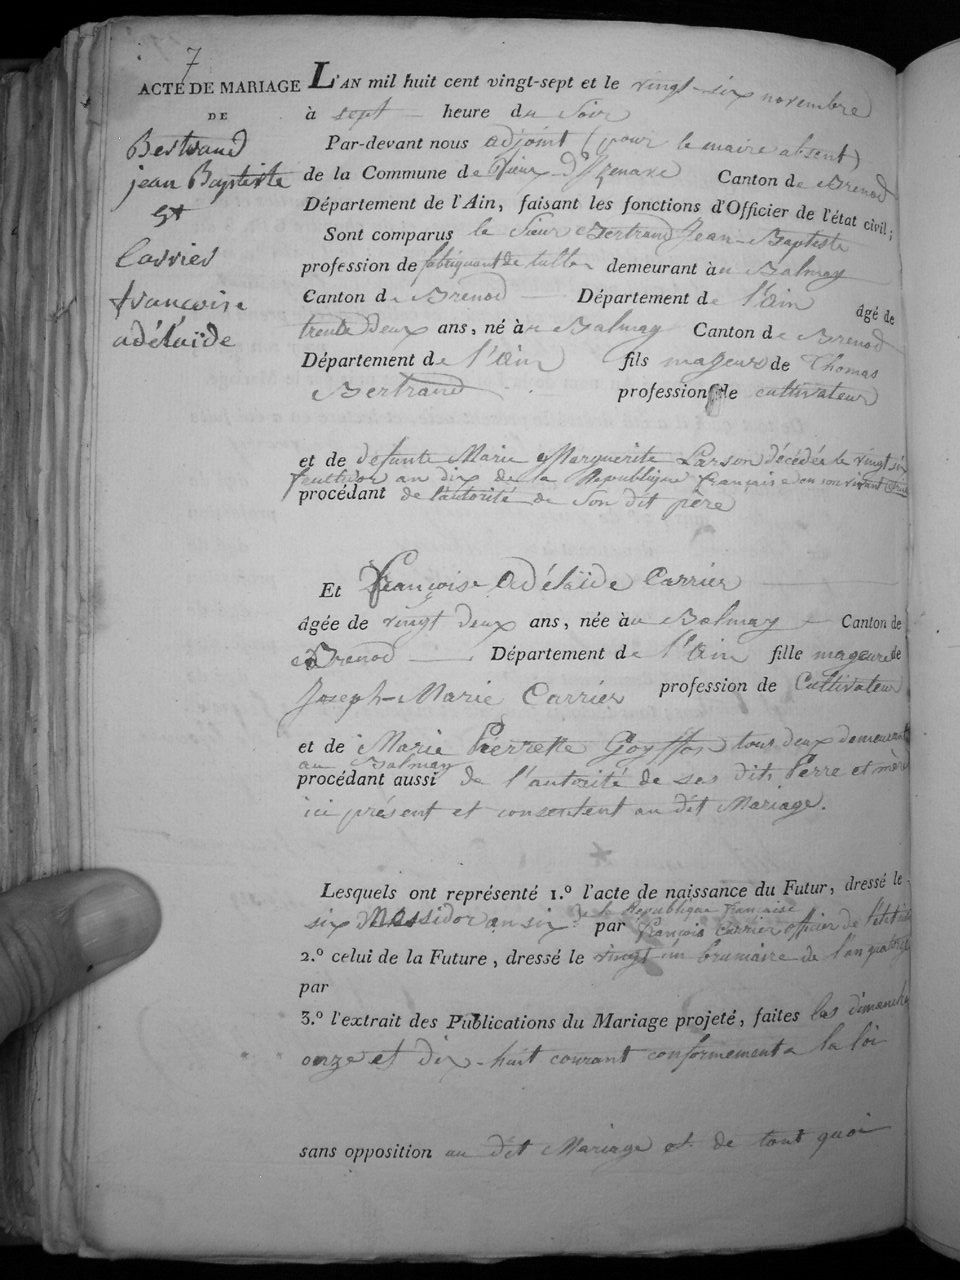 7
ACTE DE MARIAGE
DE
Bertrand
jean Baptiste
Et
Carrier
françoise
adélaïde
L'AN mil huit cent vingt-sept et le vingt-six novembre
à sept heure du Soir
Par-devant nous adjoint (pour le maire absent)
de la Commune de Vieux-d'Izenave Canton de Brenod
Département de l'Ain, faisant les fonctions d'Officier de l'état civil;
Sont comparus le Sieur Bertrand Jean-Baptiste
profession de fabriquant de tulle demeurant au Balmay
Canton de Brenod Département de l'Ain âgé de
trente deux ans, né au Balmay Canton de Brenod
Département de l'Ain fils mageur de Thomas
Bertrand profession de cultivateur
et de defunte Marie Marguerite Larson décédée le vingt six
an dix de la Republique française en son vivant
procédant de l'autorité de Son dit père
Et Françoise Adélaïde Carrier
âgée de vingt deux ans, née au Balmay Canton de
Brenod Département de l'Ain fille mageure de
Joseph-Marie Carrier profession de Cultivateur
et de Marie Pierrette Goyffon tous deux demeurant
au Balmay
procédant aussi de l'autorité de ses dits Perre et mère
ici présent et consentent au dit Mariage.
Lesquels ont représenté 1.° l'acte de naissance du Futur, dressé le
six Messidor an six de la République française par françois Carrier officier de l'état
2.° celui de la Future, dressé le vingt un brumaire de l'an quatorze
par
3.° l'extrait des Publications du Mariage projeté, faites les dimanches
onze et dix-huit courant conformement a la loi
sans opposition au dit Mariage et de tout quoi